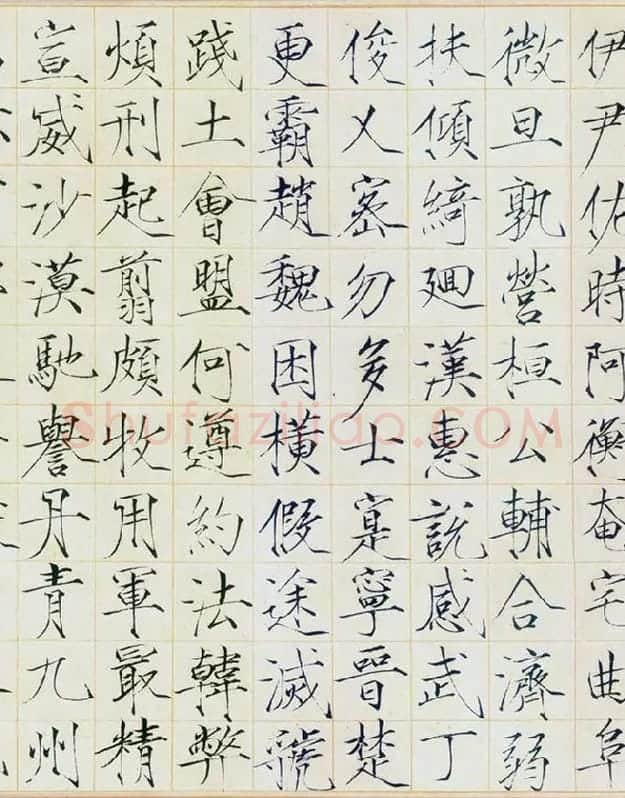 伊尹佑時阿衡奄宅曲阜
微旦孰營桓公輔合濟弱
扶傾綺廻漢惠說感武丁
俊乂密勿多士寔寧晉楚
更霸趙魏困橫假途滅虢
踐土會盟何遵約法韓弊
煩刑起翦頗牧用軍最精
宣威沙漠馳譽丹青九州
Shufaziliao.COM